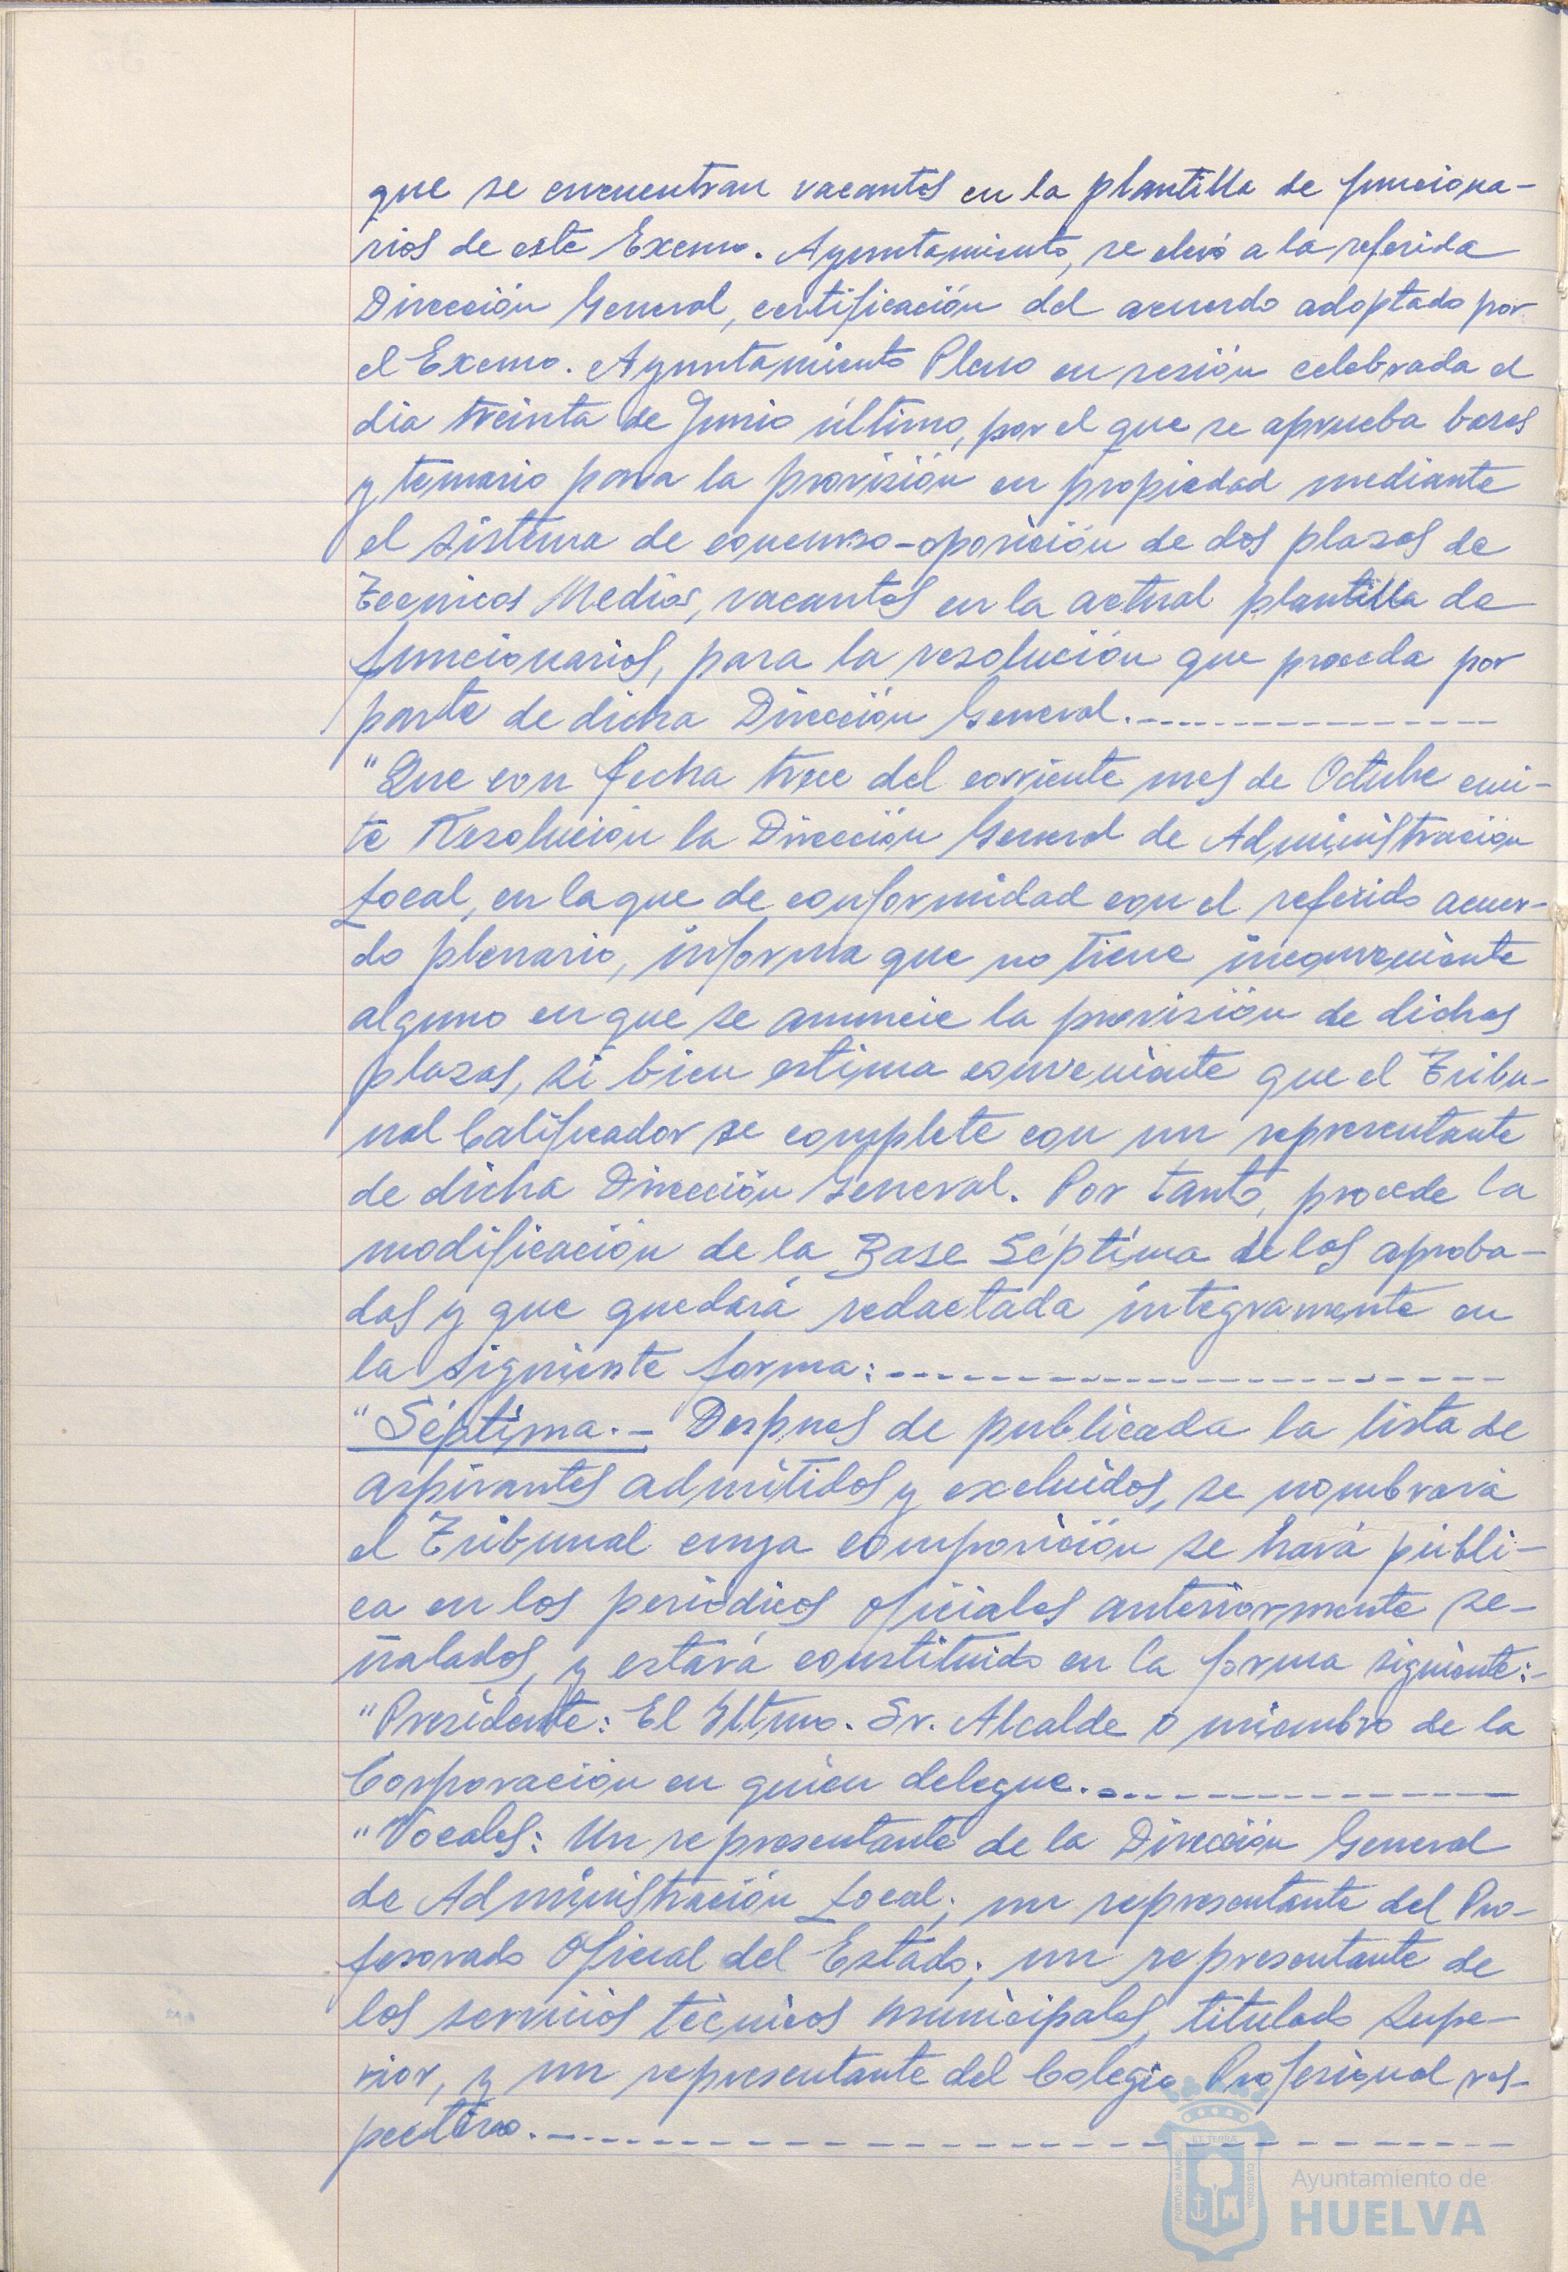 que se encuentran vacantes en la plantilla de funciona-
rios de este Excmo. Ayuntamiento, se elevó a la referida
Dirección General, certificación del acuerdo adoptado por
el Excmo. Ayuntamiento Pleno en sesión celebrada el
dia treinta de Junio último, por el que se aprueba bases
y temario para la provisión en propiedad mediante
el sistema de concurso-oposición de dos plazas de
Tecnicos Medios, vacantes en la actual plantilla de
funcionarios, para la resolución que proceda por
parte de dicha Dirección General.---------------
"Que con fecha trece del corriente mes de Octubre emi-
te Resolución la Dirección General de Administración
Local, en la que de conformidad con el referido acuer-
do plenario, informa que no tiene inconveniente
alguno en que se anuncie la provisión de dichas
plazas, si bien estima conveniente que el Tribu-
nal Calificador se complete con un representante
de dicha Dirección General. Por tanto, procede la
modificación de la Base Séptima de las aproba-
das y que quedará redactada integramente en
la siguiente forma:--------------------
"Séptima.- Despues de publicada la lista de
aspirantes admitidos y excluidos, se nombrará
el Tribunal cuya composición se hará públi-
ca en los periódicos oficiales anteriormente se-
ñalados, y estará constituido en la forma siguiente:-
"Presidente: El Iltmo. Sr. Alcalde o miembro de la
Corporación en quien delegue.---------------
"Vocales: Un representante de la Dirección General
de Administración Local; un representante del Pro-
fesorado Oficial del Estado; un representante de
los servicios técnicos municipales, titulado Supe-
rior, y un representante del Colegio Profesional res-
pectivo.--------------------
PORTUS MARIS ET TERRAE CUSTODIA
Ayuntamiento de
HUELVA